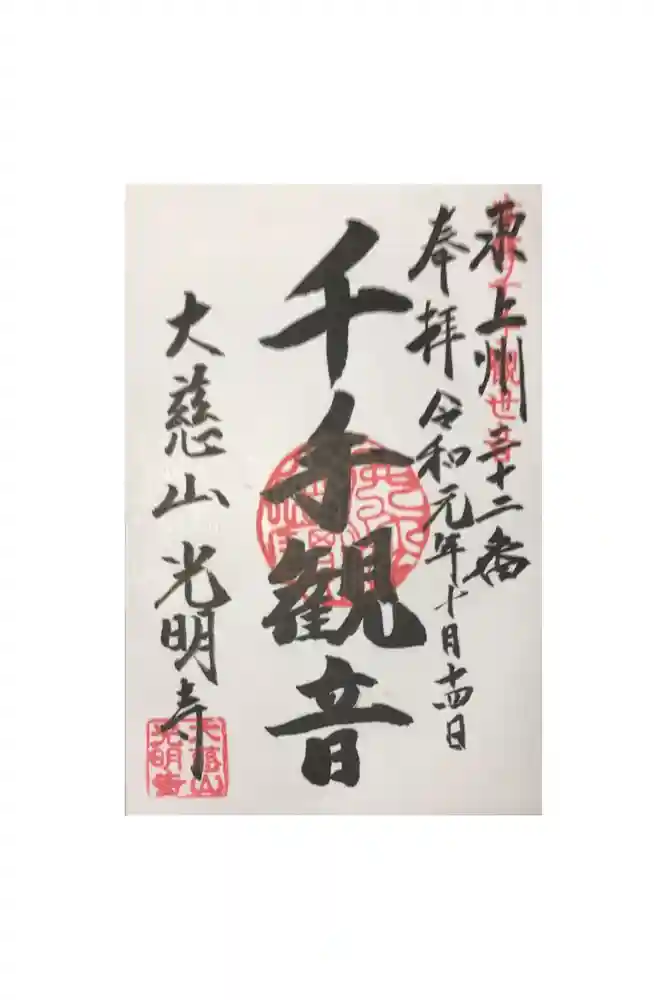 東上州三十二番
奉拝 令和元年十月十四日
千手観音
大慈山 光明寺
大慈山
光明寺